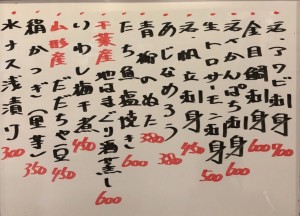 活アワビ刺身 700
金目鯛刺身 600
活かんぱち刺身 600
生トロサーモン刺身 500
活帆立刺身 450
あじなめろう 380
青柳のぬた 380
たち魚塩焼き 600
千葉産 地はまぐり酒蒸し 600
いわし梅干煮 450
山形産 だだちゃ豆 450
絹かつぎ(里芋) 350
水ナス浅漬り 300